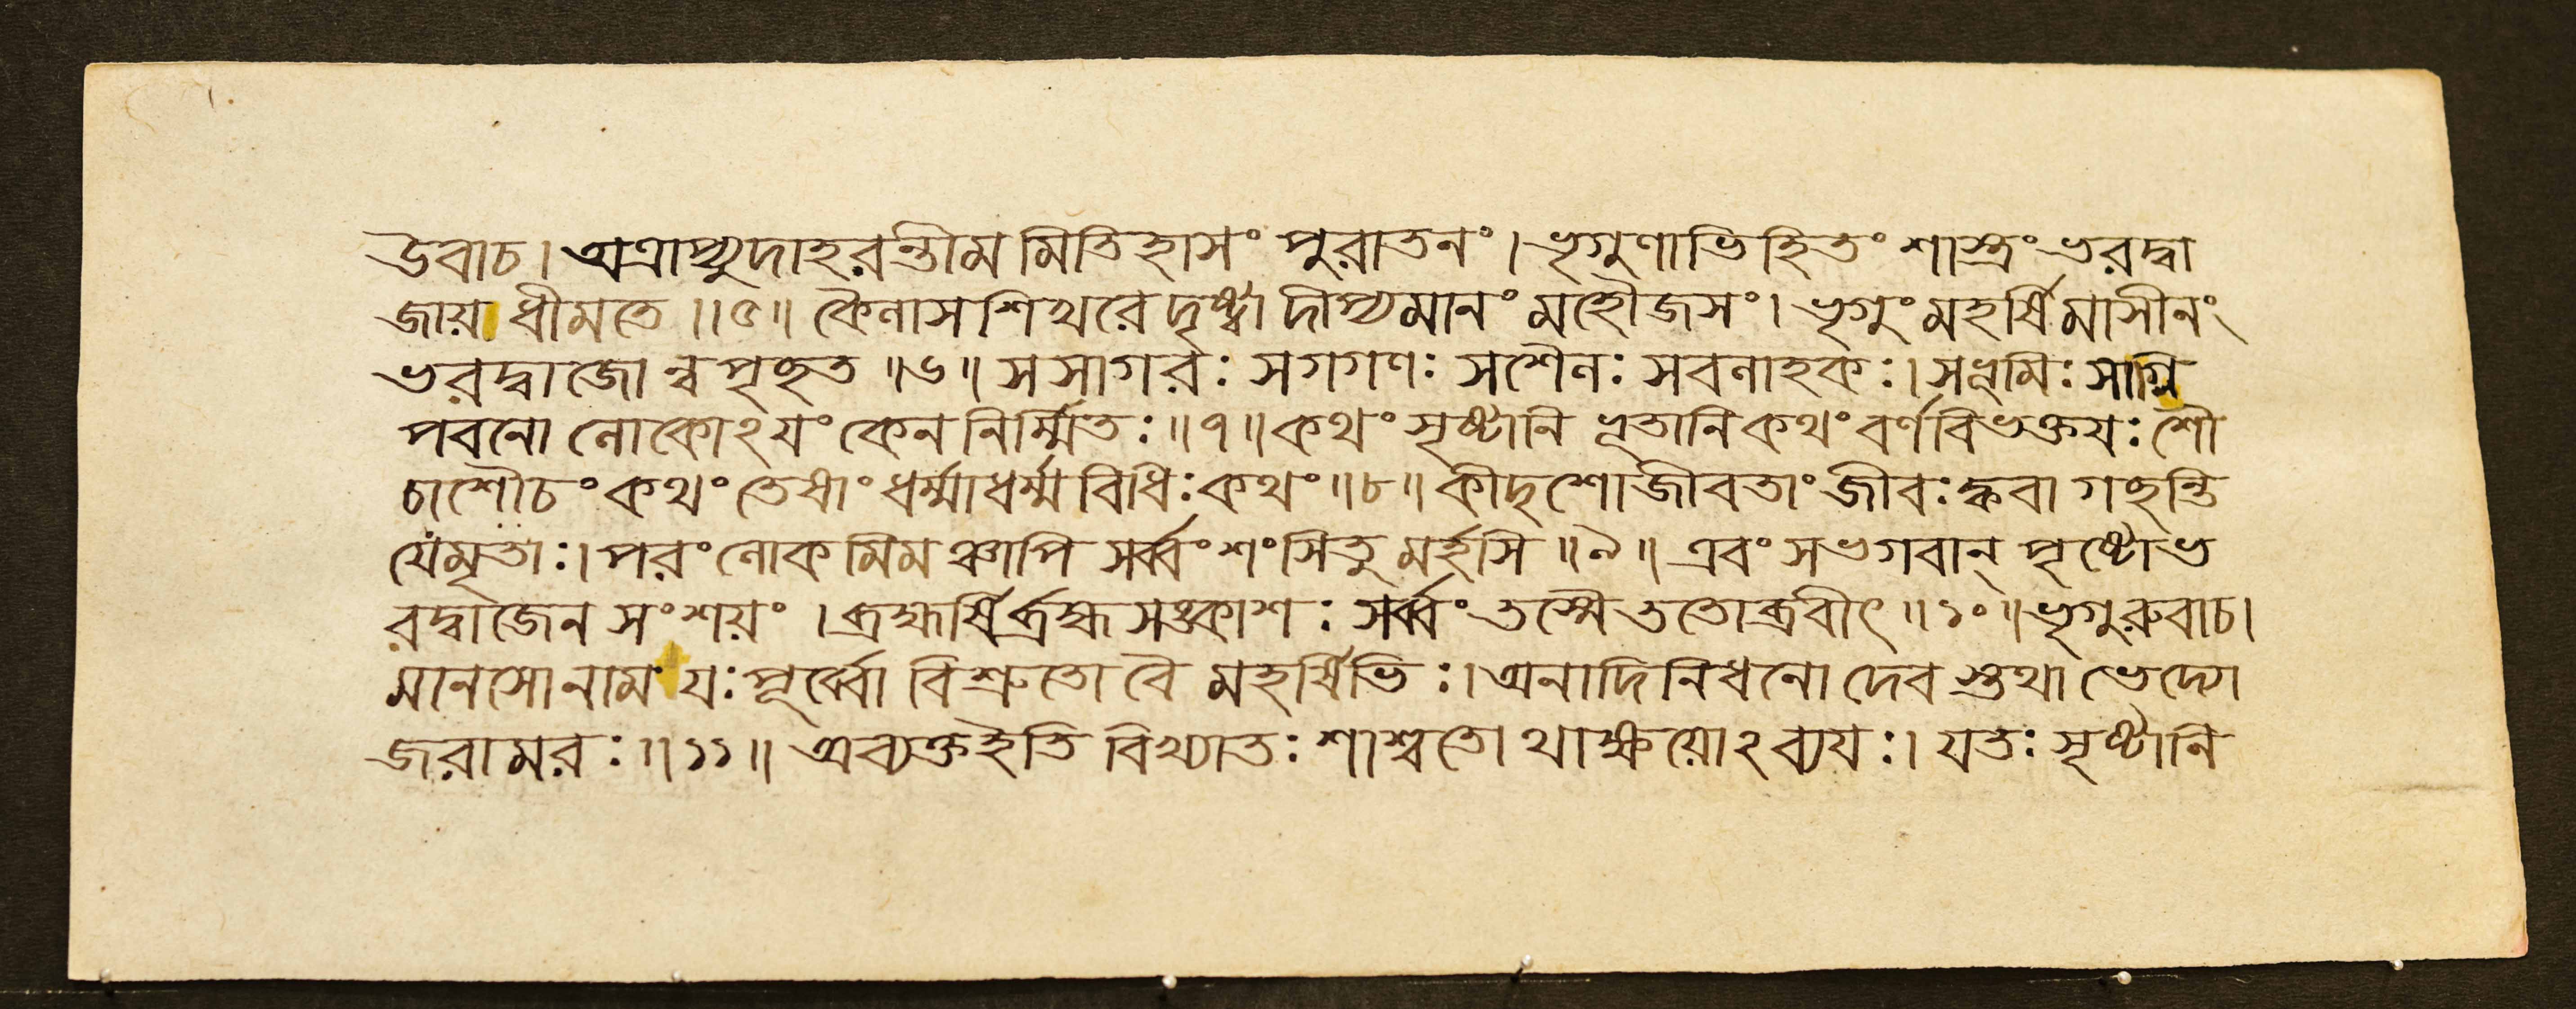 উবাচ। অত্রাপ্যুদাহরন্তীমমিতিহাসং পুরাতনং। ভৃগুণাভিহিতং শাস্ত্রং ভরদ্বা
জায় ধীমতে ॥৫॥ কৈলাসশিখরে দৃষ্ট্বা দীপ্যমানং মহৌজসং। ভৃগুং মহর্ষিমাসীনং
ভরদ্বাজোন্বপৃচ্ছত ॥৬॥ সসাগরঃ সগগণঃ সশৈলঃ সবলাহকঃ। সভূমিঃ সাগ্নি
পবনো লোকোঽয়ং কেন নির্ম্মিতঃ ॥৭॥ কথং সৃষ্টানি ভূতানি কথং বর্ণবিভক্তয়ঃ শৌ
চাশৌচং কথং তেষাং ধর্ম্মাধর্ম্মবিধিঃ কথং ॥৮॥ কীদৃশো জীবতাং জীবঃ ক্ববা গচ্ছন্তি
যেমৃতাঃ। পরং লোকমিমঞ্চাপি সর্ব্বং শংসিতুমর্হসি ॥৯॥ এবং সভগবান্ পৃষ্টোভ
রদ্বাজেন সংশয়ং। ব্রহ্মর্ষির্ব্রহ্মসঙ্কাশঃ সর্ব্বং তস্মৈ ততোব্রবীৎ ॥১০॥ ভৃগুরুবাচ।
মানসো নাম যঃ পূর্ব্বো বিশ্রুতো বৈ মহর্ষিভিঃ। অনাদিনিধনো দেবস্তথাভেদ্যো
জরামরঃ ॥১১॥ অব্যক্তইতি বিখ্যাতঃ শাশ্বতোথাক্ষয়োঽব্যয়ঃ। যতঃ সৃষ্টানি